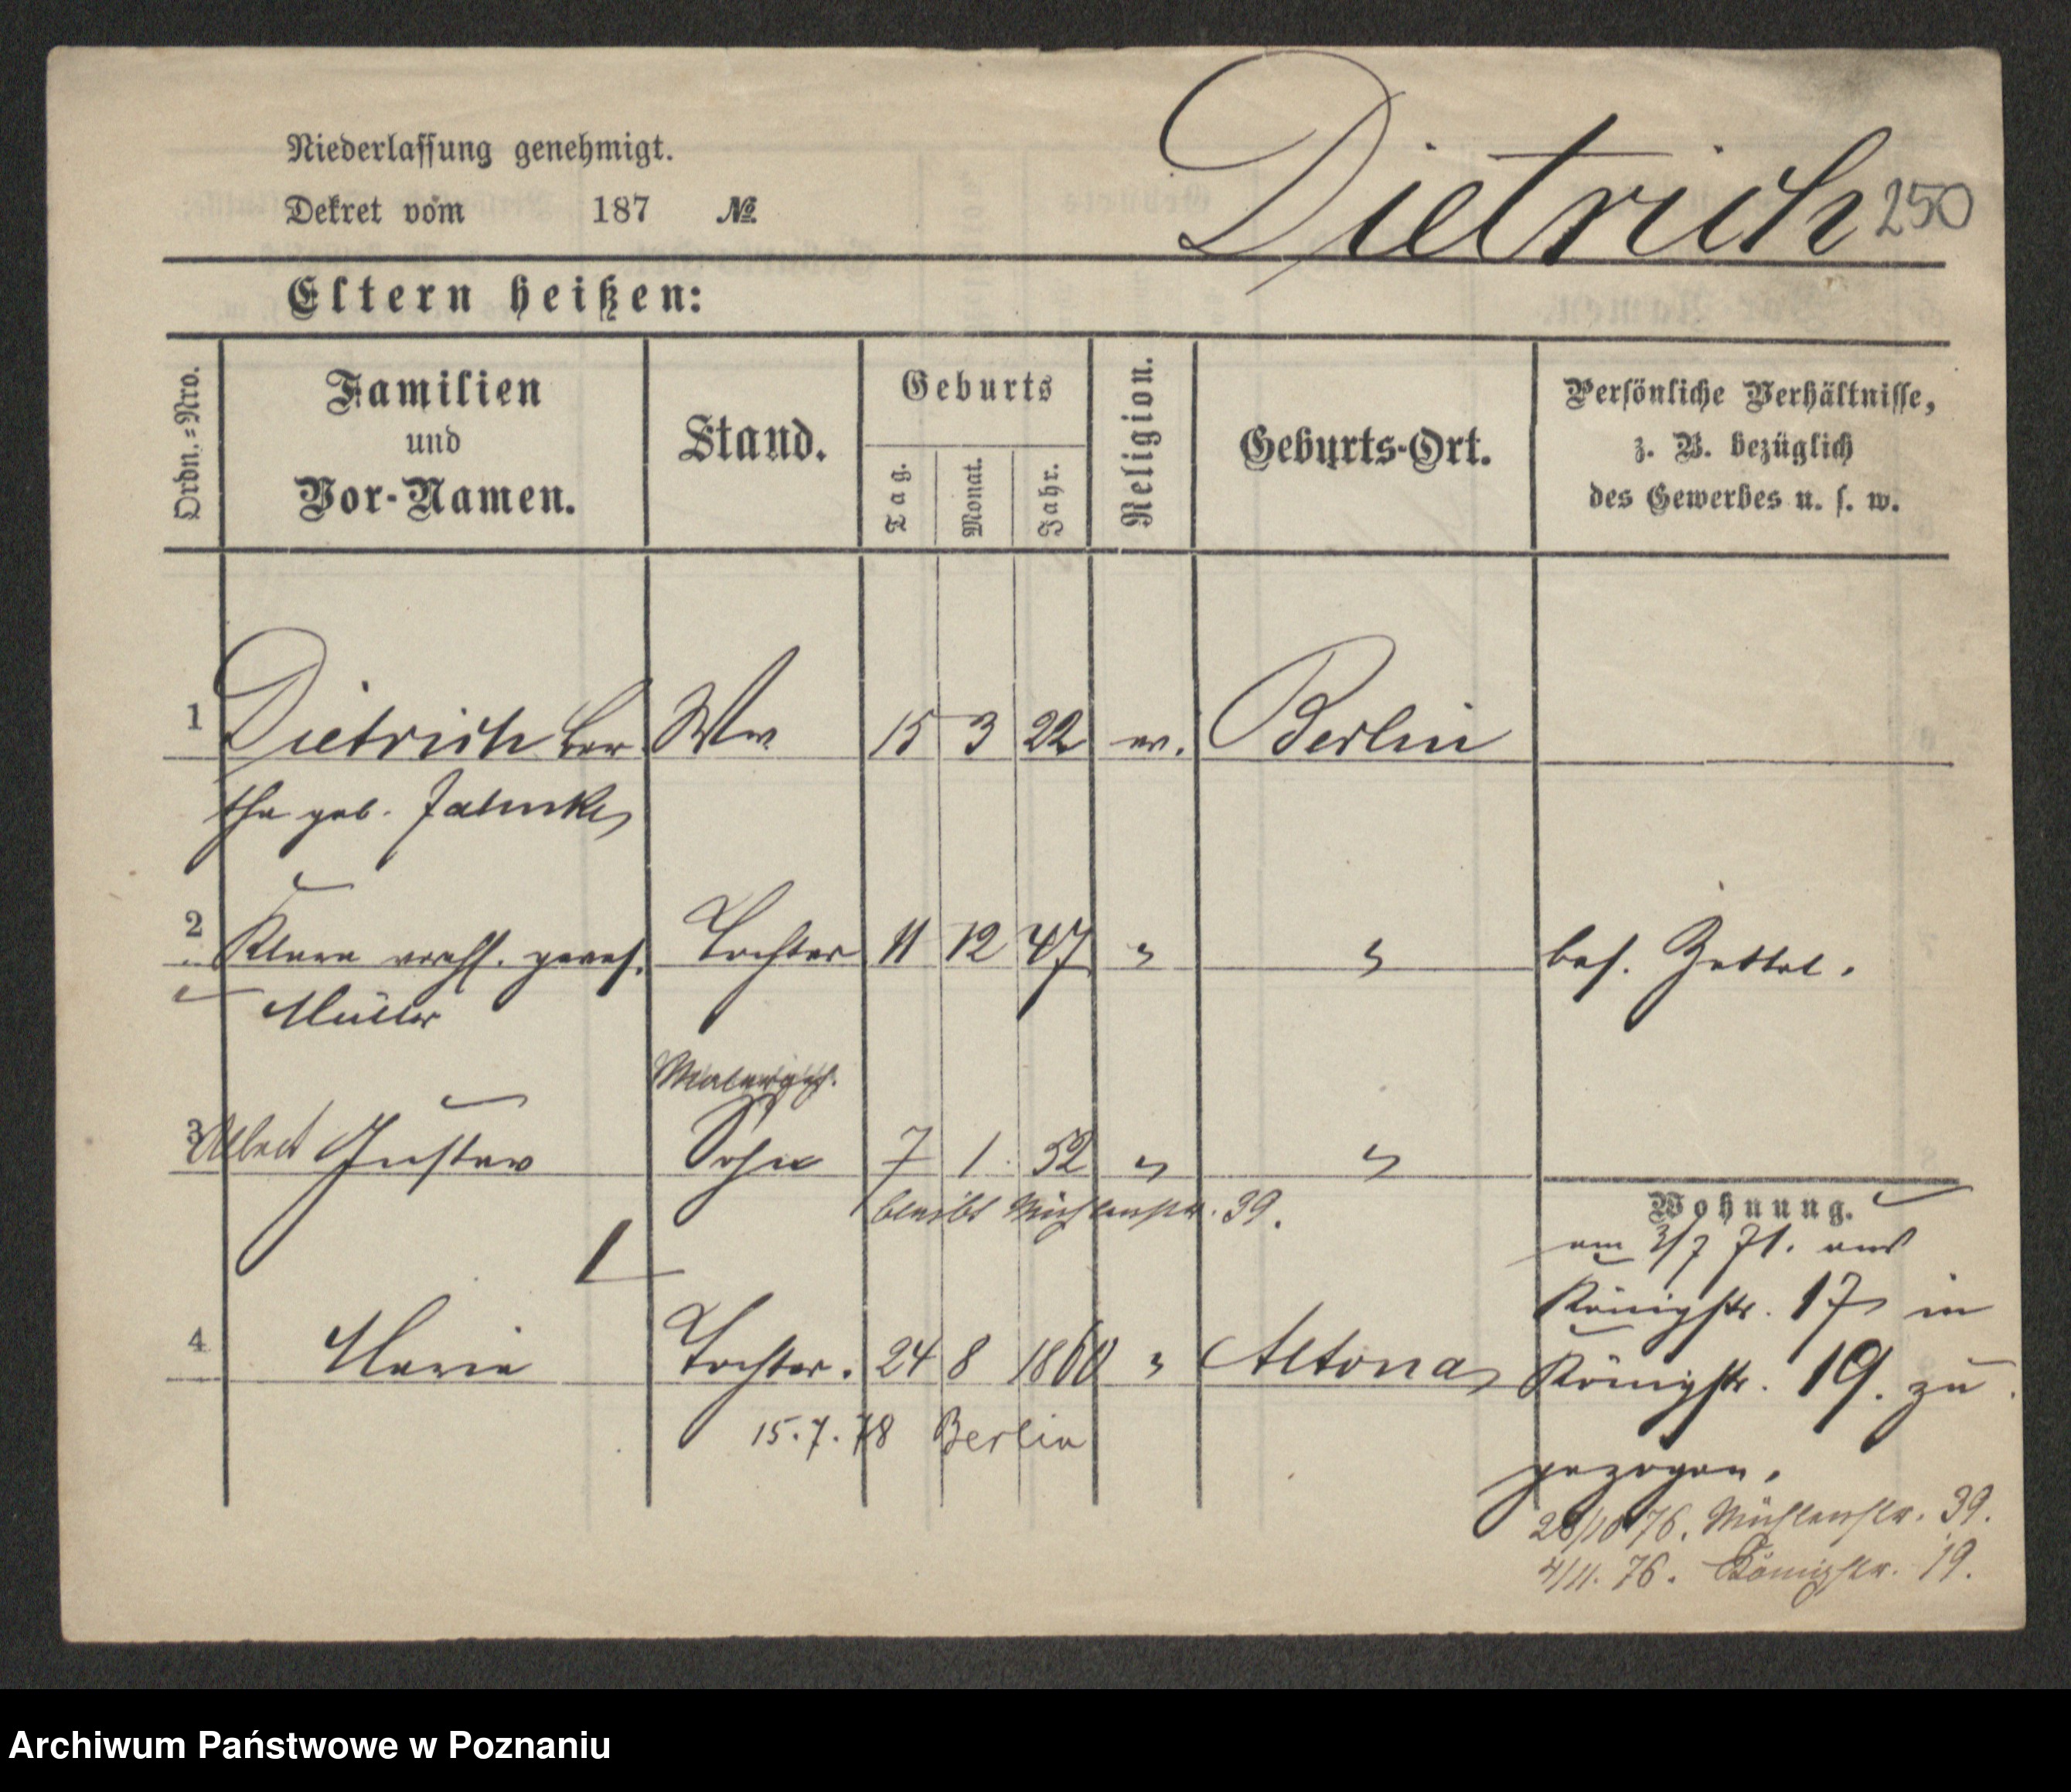 Niederlassung genehmigt.
Dekret vom 187 №
Dietrich 250
Eltern heißen:
Ordn.=Nro.
Familien
und
Vor-Namen.
Stand.
Geburts
Tag.
Monat.
Jahr.
Religion.
Geburts-Ort.
Persönliche Verhältnisse,
z. B. bezüglich
des Gewerbes u. s. w.
1 Dietrich Ber Ww 15 3 22 ev. Berlin
tha geb. Jahnke
2 Klara verehl. gewes. Tochter 11 12 47 " " bes. Zettel.
Müller
Malergeh.
3 Albert Gustav Sohn 7 1. 52 " "
bleibt Mühlenstr. 39.
Wohnung.
am 3/7 71. aus
Königstr. 17 in
4 Maria Tochter. 24 8 1860 " Altona Königstr. 19. zu
15.7.78 Berlin
gezogen.
28/10 76. Mühlenstr. 39.
4/11. 76. Königstr. 19.
Archiwum Państwowe w Poznaniu